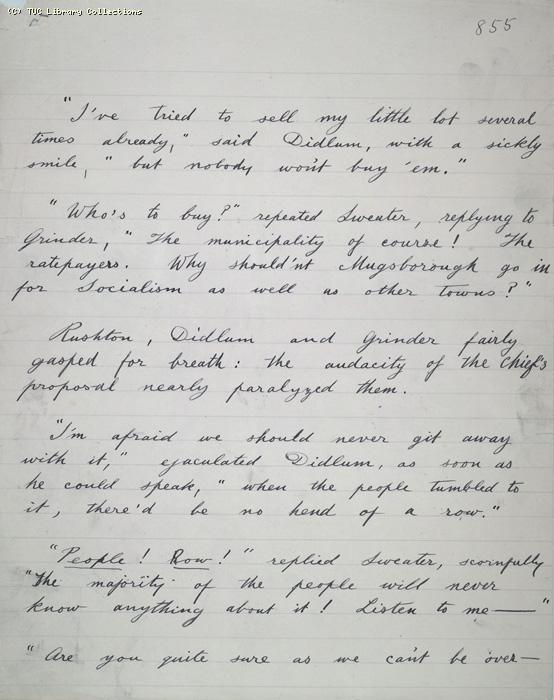 (C) TUC Library Collections
855
"I've tried to sell my little lot several
times already," said Didlum, with a sickly
smile, "but nobody won't buy 'em."
"Who's to buy?" repeated Sweater, replying to
Grinder, "The municipality of course! The
ratepayers. Why should'nt Mugsborough go in
for Socialism as well as other towns?"
Rushton, Didlum and Grinder fairly
gasped for breath: the audacity of the chief's
proposal nearly paralyzed them.
"I'm afraid we should never git away
with it," ejaculated Didlum, as soon as
he could speak, "when the people tumbled to
it, there'd be no hend of a row."
"People! Row!" replied Sweater, scornfully
"The majority of the people will never
know anything about it! Listen to me—"
"Are you quite sure as we can't be over—